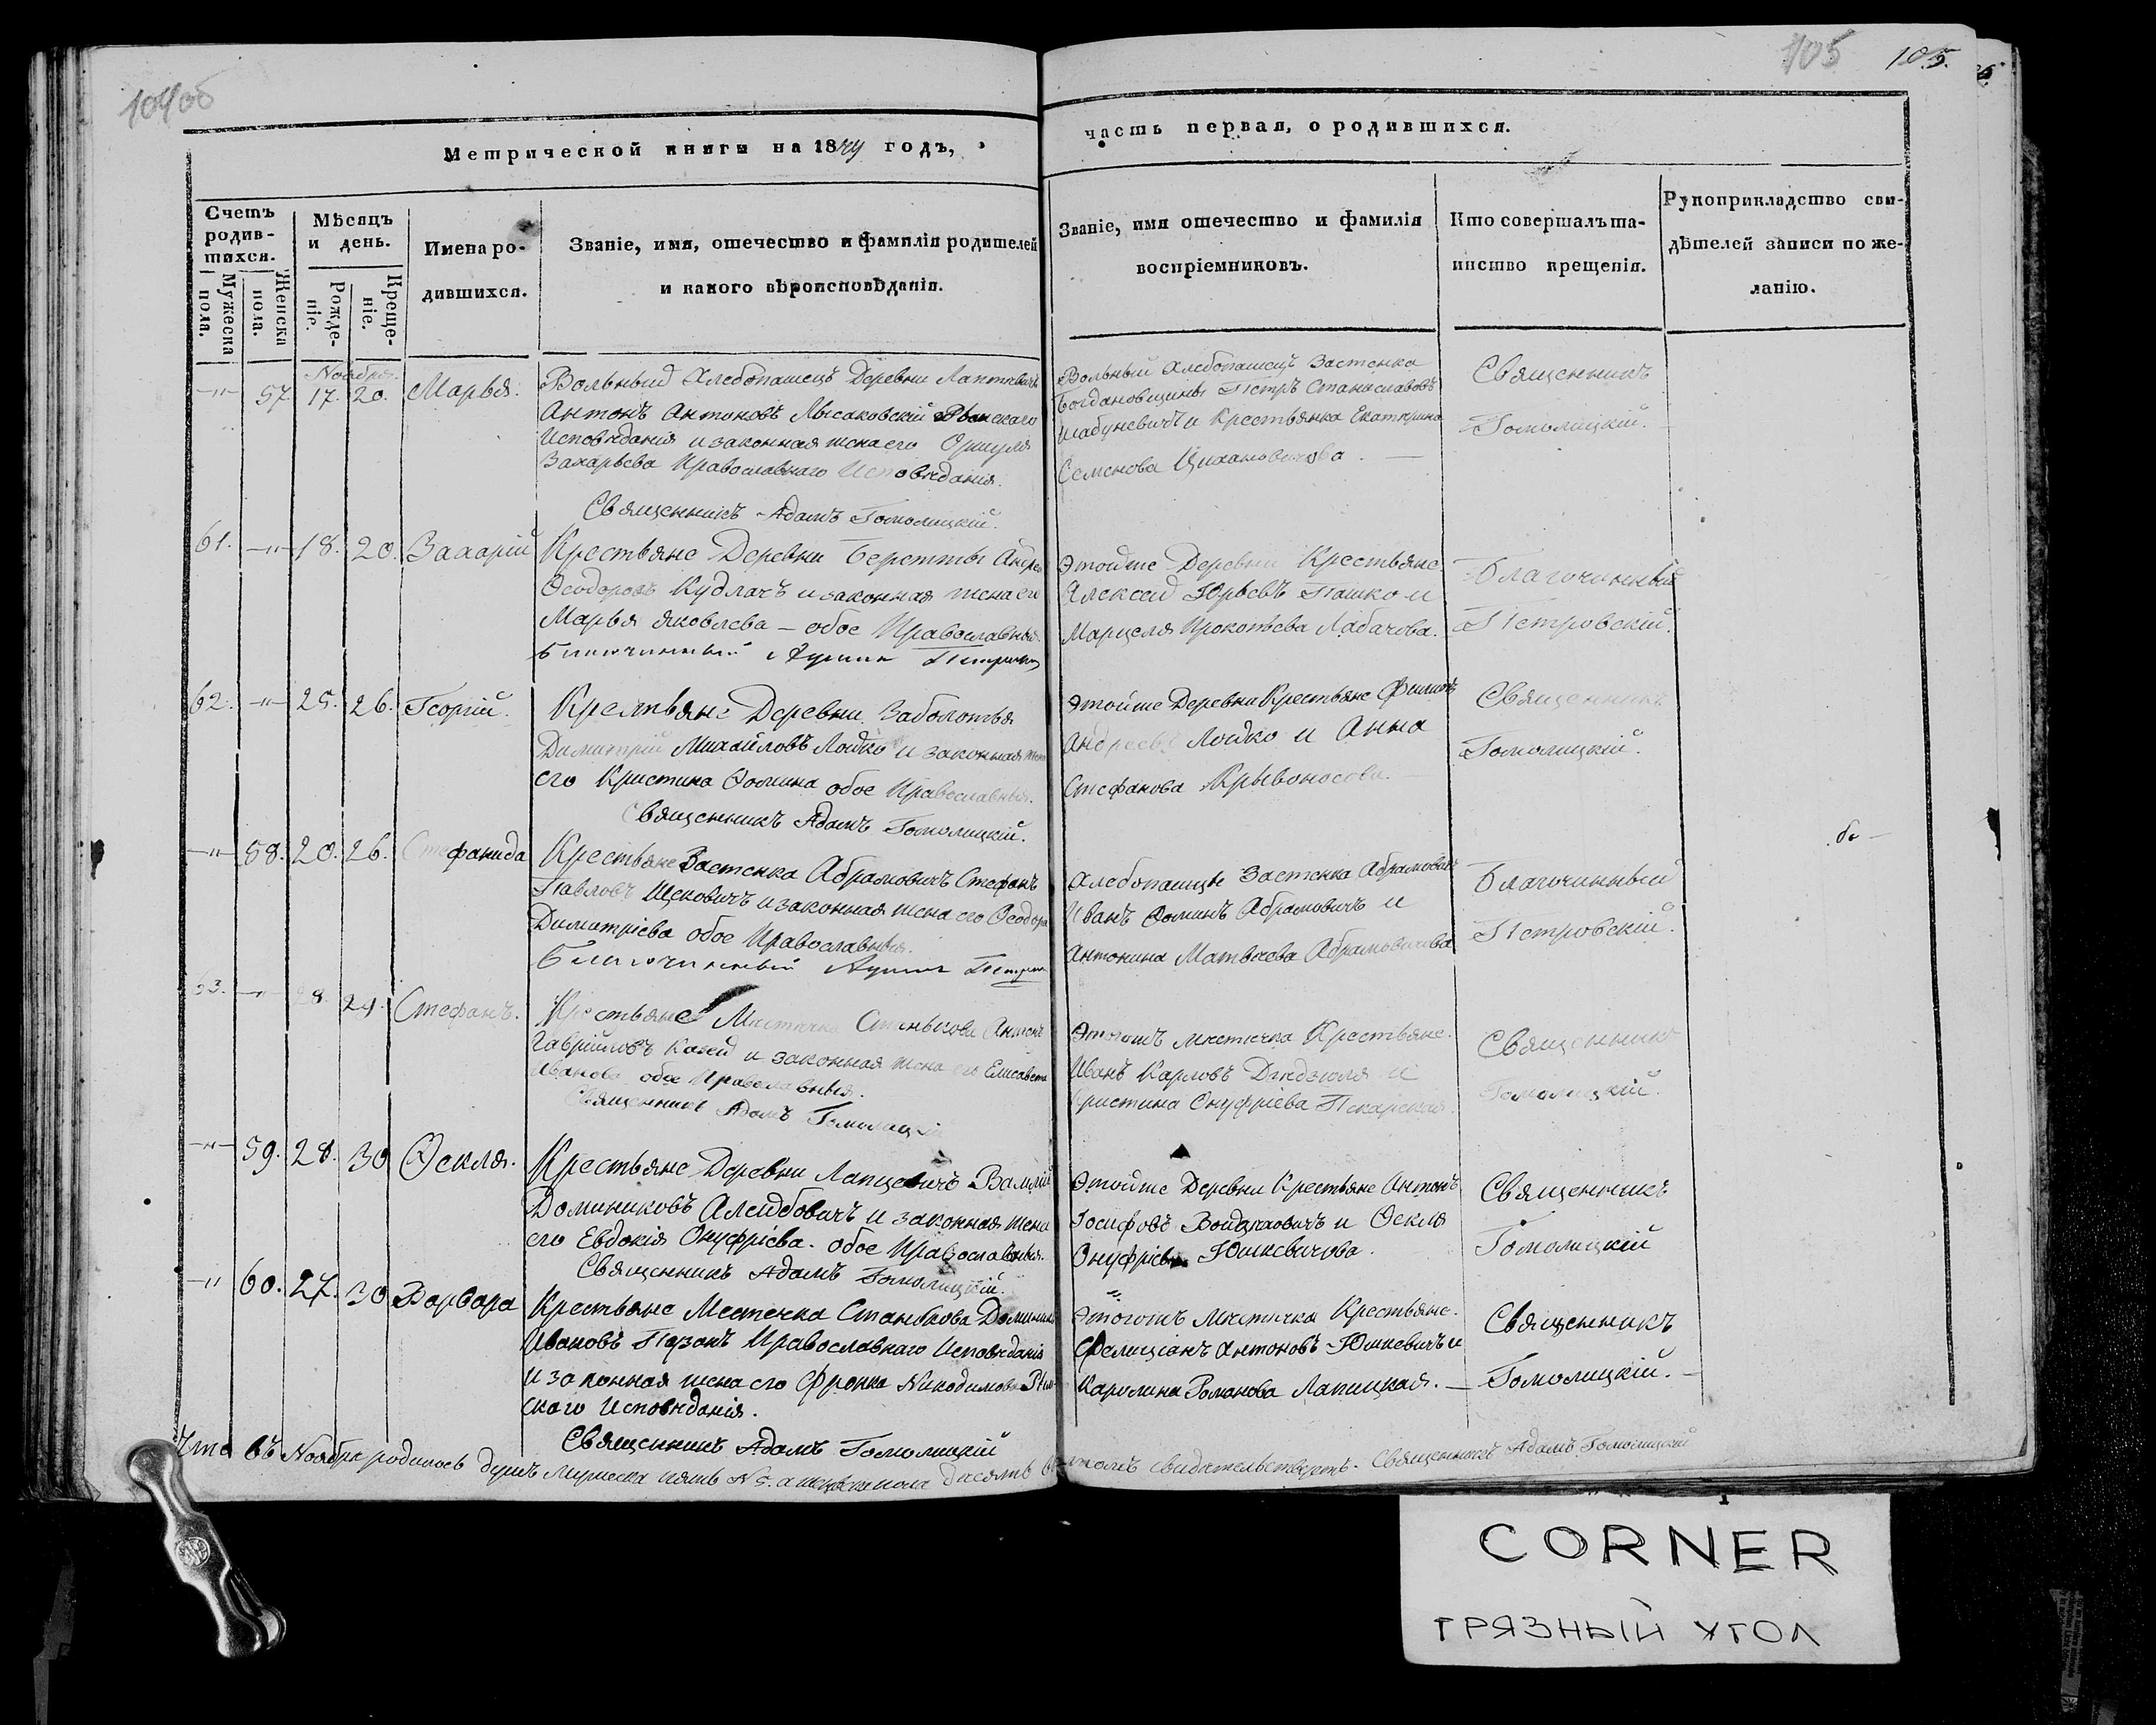 104об
105
105.
Метрической книги на 1844 годъ,
часть первая, о родившихся.
Счетъ родив-шихся.
Мужеска пола.
Женска пола.
Мѣсяцъ и день.
Рожде-ніе.
Креще-ніе.
Имена ро-дившихся.
Званіе, имя, отечество и фамилія родителей
и какого вѣроисповѣданія.
Званіе, имя отечество и фамилія
воспріемниковъ.
Кто совершалъ та-
инство крещенія.
Рукоприкладство сви-
дѣтелей записи по же-
ланію.
Ноября.
—"— 57. 17. 20. Марья.
Вольный Хлебопашецъ Деревни
Антонъ Антоновъ Лысаковскій Римскаго
Исповѣданія и законная жена его
Захарьева Православнаго Исповѣданія.
Священникъ Адамъ Гомолицкій.
Вольный Хлебопашецъ Застенка
Богдановщины Петръ Станиславовъ
Шабуневичъ и Крестьянка Екатерина
Семенова Цихановичова. —
Священникъ
Гомолицкій.
61. —"— 18. 20. Захарій
Крестьяне Деревни Бережты Андрей
Ѳеодоровъ Кудлачъ и законная жена его
Марья Яковлева — обое Православныя.
Благочинный
Этойже Деревни Крестьяне
Алексей Юрьевъ Пашко и
Марцеля Прокопьева Лабачова.
Благочинный
Петровскій.
62. —"— 25. 26. Георгій.
Крестьяне Деревни Заболотья
Димитрій Михайловъ Лойко и законная жена
его Кристина Ѳомина обое Православныя.
Священникъ Адамъ Гомолицкій.
Этойже Деревни Крестьяне Филипъ
Андреевъ Лойко и Анна
Стефанова Крывоносова. —
Священникъ
Гомолицкій.
—"— 58. 20. 26. Стефанида
Крестьяне Застенка Абрамовичъ Стефанъ
Павловъ и законная жена его Ѳеодора
Димитріева обое Православныя.
Благочинный
Хлебопашцы Застенка Абрамовичъ
Иванъ Ѳоминъ Абрамовичъ и
Антонина Матвеева Абрамовичова
Благочинный
Петровскій.
63. —"— 28. 29. Стефанъ.
Крестьяне Местечка Станькова Антонъ
Гаврійловъ и законная жена его Елисавета
Иванова обое Православныя.
Священникъ Адамъ Гомолицкій
Этогожъ местечка Крестьяне
Иванъ Карловъ и
Кристина Онуфріева Пекарская.
Священникъ
Гомолицкій.
—"— 59. 28. 30 Ѳекля.
Крестьяне Деревни Лапцевичъ
Доминиковъ и законная жена
его Евдокія Онуфріева. обое Православныя.
Священникъ Адамъ Гомолицкій.
Этойже Деревни Крестьяне Антонъ
Іосифовъ и Ѳекля
Онуфріева Юшкевичова.
Священникъ
Гомолицкій
—" 60. 27. 30 Варвара
Крестьяне Местечка Станькова Доминикъ
Ивановъ Православнаго Исповѣданія
и законная жена его Франка Никодимова Рим-
скаго Исповѣданія.
Священникъ Адамъ Гомолицкій
Этогожъ местечка Крестьяне.
Фелиціанъ Антоновъ Юшкевичъ и
Каролина Романова Лапицкая. —
Священникъ
Гомолицкій. —
Что въ Ноябре родилось душъ Мужеска пять № 5. а женска пола десять въ томъ свидетельствуетъ. Священникъ Адамъ Гомолицкій
CORNER
ГРЯЗНЫЙ УГОЛ